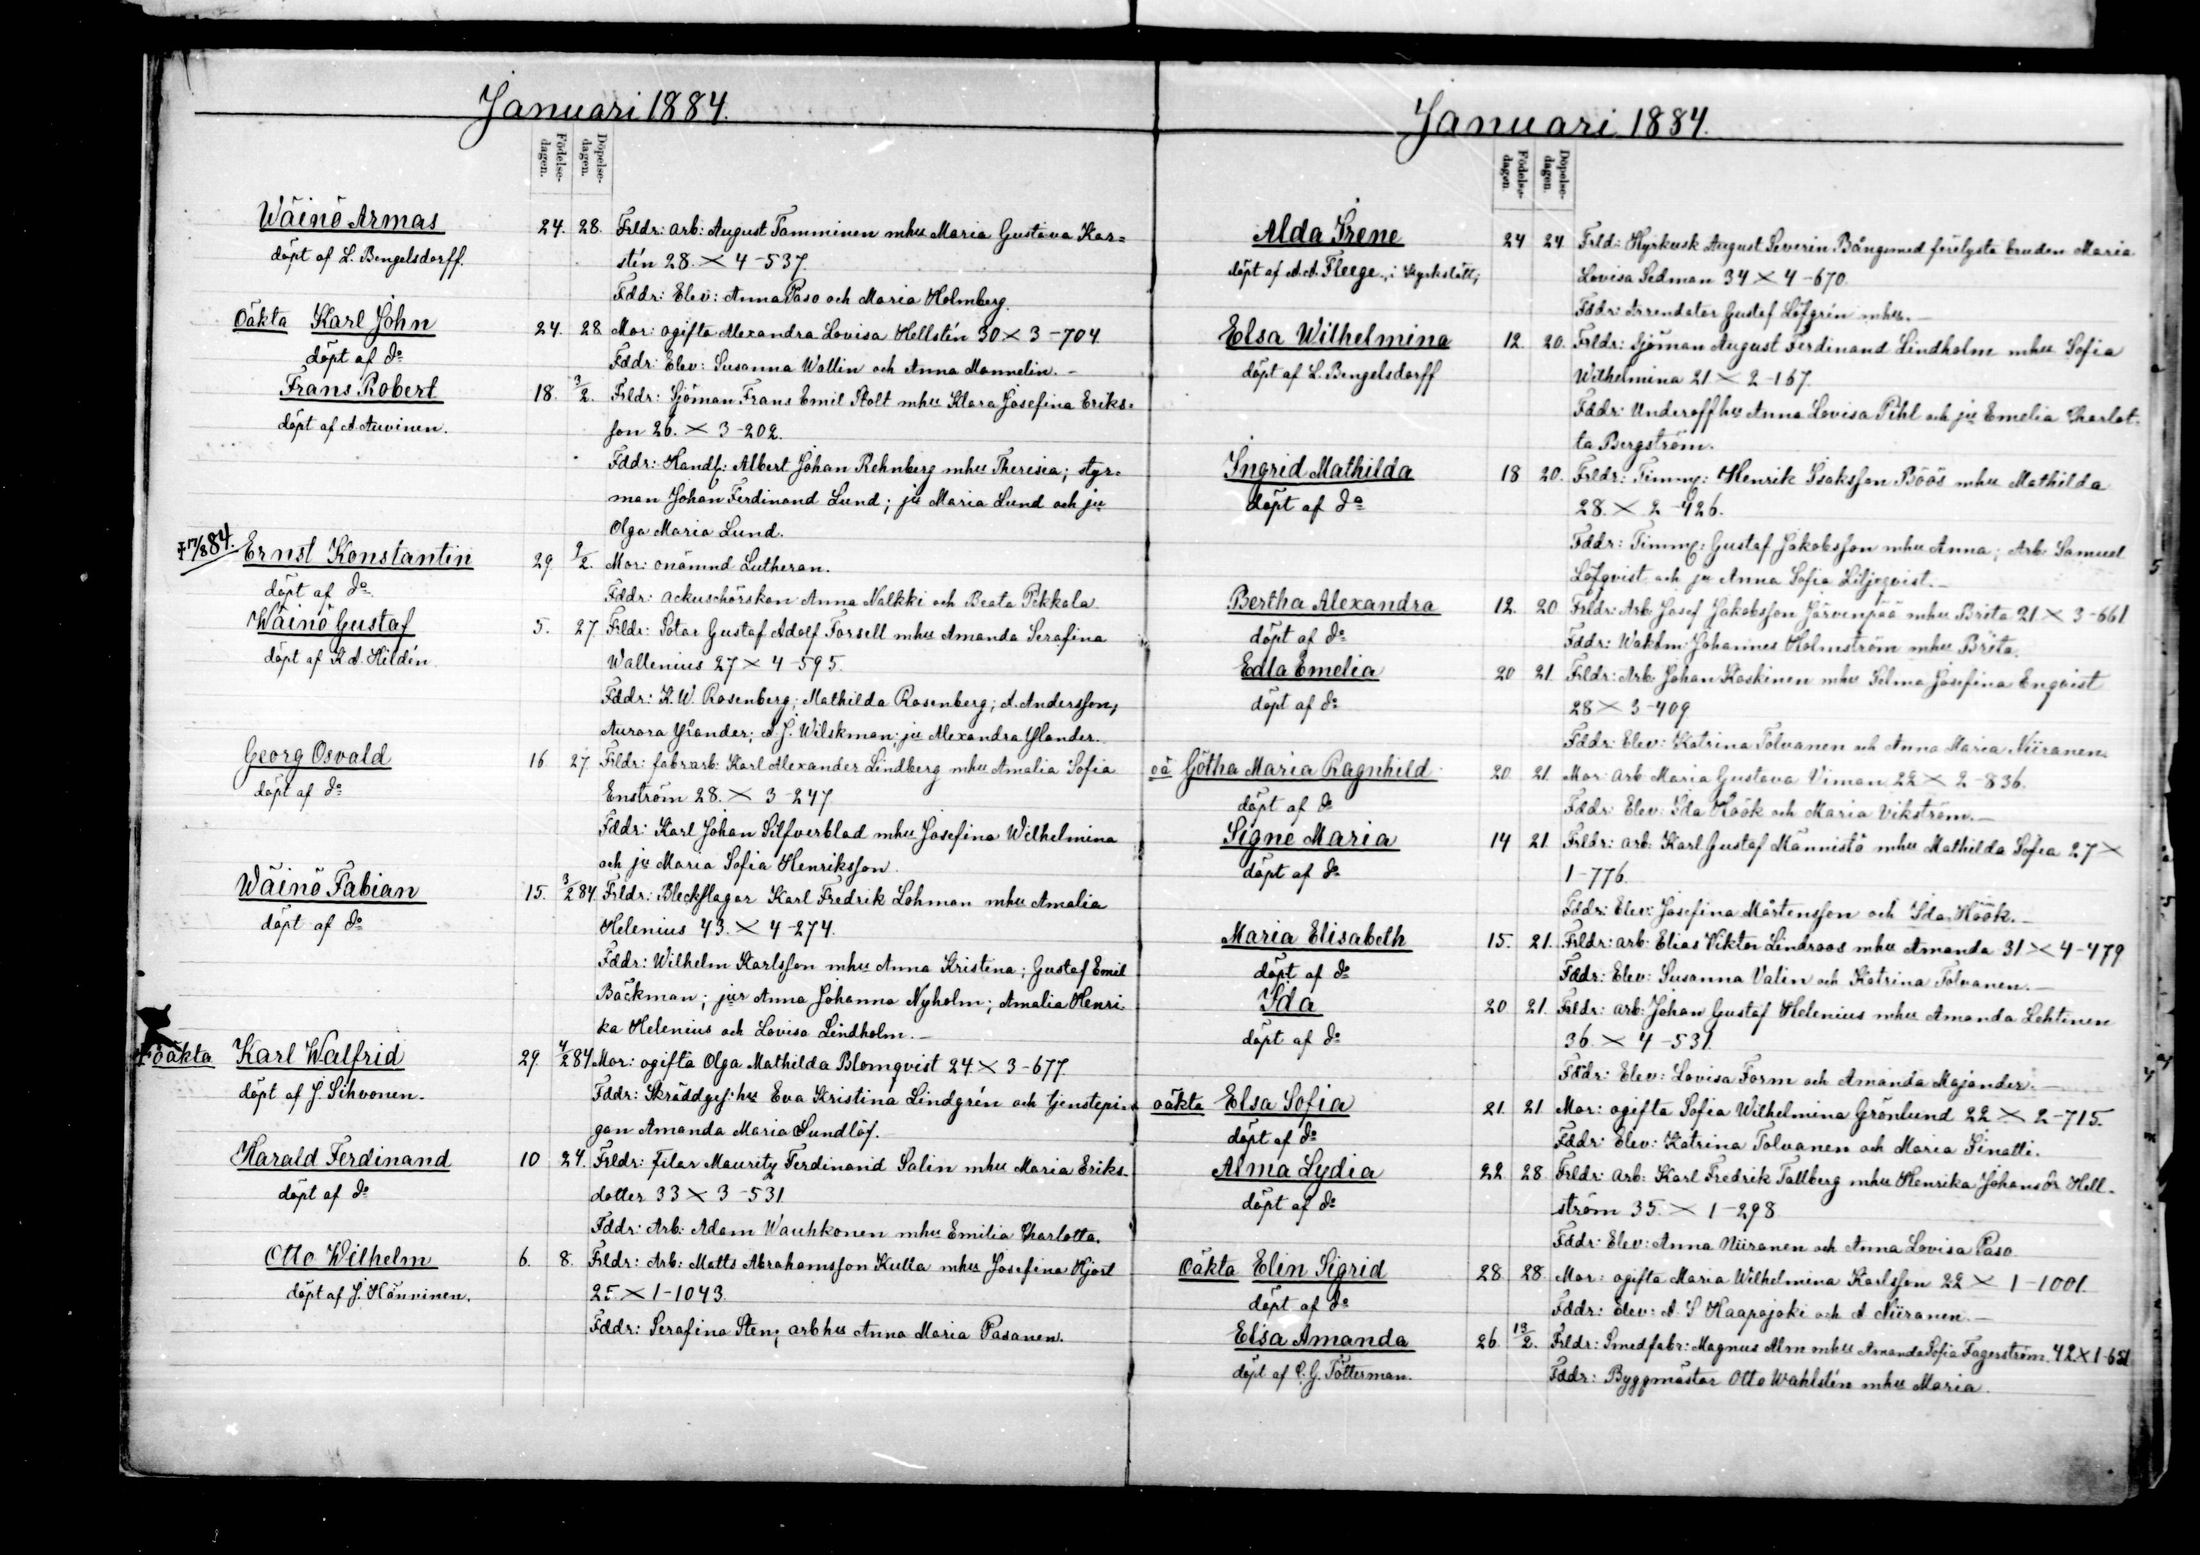 Januari 1884.
Födelse-dagen.
Döpelse-dagen.
Wäinö Armas 24. 28. Frldr: arb: August Tamminen mhu Maria Gustava Kar=
döpt af L. Bengelsdorff. stén 28. × 4-537.
Fddr: Elev: Anna Paso och Maria Holmberg.
Oäkta Karl John 24. 28 Mor: ogifta Alexandra Lovisa Hellstén 30 × 3-704
döpt af do Fddr: Elev: Susanna Wallin och Anna Mannelin.-
Frans Robert 18. 3/2. Frldr: Sjöman Frans Emil Stolt mhu Klara Josefina Eriks=
döpt af A Auvinen. son 26. × 3-202.
Fddr: Handl: Albert Johan Rehnberg mhu Theresia; styr=
man Johan Ferdinand Lund; ju Maria Lund och ju
Olga Maria Lund.
† 17/8 84. Ernst Konstantin 29. 9/2. Mor: onämnd Lutheran.
döpt af do Fddr: ackuschörskan Anna Nalkki och Beata Pekkala
Wäinö Gustaf 5. 27. Frldr: Sotar Gustaf Adolf Forsell mhu Amanda Serafina
döpt af K A. Hildén Wallenius 27 × 4-595.
Fddr: K. W. Rosenberg; Mathilda Rosenberg; A. Andersson,
Aurora Ylander; A. J. Wilskman; ju Alexandra Ylander.
Georg Osvald 16. 27 Frldr: fabrarb: Karl Alexander Lindberg mhu Amalia Sofia
döpt af do Enström 28. × 3-247
Fddr: Karl Johan Silfverblad mhu Josefina Wilhelmina
och ju Maria Sofia Henriksson
Wäinö Fabian 15. 3/2 84. Frldr: Bleckslagar Karl Fredrik Lohman mhu Amalia
döpt af do Helenius 43. × 4-274.
Fddr: Wilhelm Karlsson mhu Anna Kristina; Gustaf Emil
Bäckman; jur Anna Johanna Nyholm; Amalia Henri
ka Helenius och Lovisa Lindholm.-
† oäkta Karl Walfrid 29. 4/2 84 Mor: ogifta Olga Mathilda Blomqvist 24 × 3-677.
döpt af J. Sihvonen. Fddr: Skräddges: hu Eva Kristina Lindgrén och tjenstepi
gan Amanda Maria Sundlöf.
Harald Ferdinand 10 24. Frldr: Filar Mauritz Ferdinand Salin mhu Maria Eriks-
döpt af do dotter 33 × 3-531
Fddr: Arb: Adam Wauhkonen mhu Emilia Charlotta.
Otto Wilhelm 6. 8. Frldr: Arb: Matts Abrahamsson Kulla mhu Josefina Hjort
döpt af J. Könninen. 25. × 1-1043.
Fddr: Serafina Sten; arbhu Anna Maria Pasanen.
Januari 1884.
Födelse-dagen.
Döpelse-dagen.
Alda Irene 24 24. Frld: Hyrkusk August Severin Bång med förelysta bruden Maria
döpt af A. A. Fleege, i Kyrkslätt, Lovisa Sedman 34 × 4-670.
Fddr: Arrendator Gustaf Löfgrén mhu.-
Elsa Wilhelmina 12. 20. Frldr: Sjöman August Ferdinand Lindholm mhu Sofia
döpt af L. Bengelsdorff Wilhelmina 21 × 2-167.
Fddr: Underoff hu Anna Lovisa Pihl och ju Emelia Charlot-
ta Bergström.
Ingrid Mathilda 18 20. Frldr: Timmr: Henrik Isaksson Böös mhu Mathilda
döpt af do 28. × 2-426.
Fddr: Timmr: Gustaf Jakobsson mhu Anna; Arb: Samuel
Löfqvist och ju Anna Sofia Liljeqvist.-
Bertha Alexandra 12. 20 Frldr: Arb: Josef Jakobsson Järvenpää mhu Brita 21 × 3-661
döpt af do Fddr: Waktm: Johannes Holmström mhu Brita.
Edla Emelia 20 21. Frldr: Arb: Johan Koskinen mhu Selma Josefina Enqvist
döpt af do 28 × 3-409
Fddr: Elev: Katrina Tolvanen och Anna Maria Niiranen.
oä Götha Maria Ragnhild 20 21. Mor: arb Maria Gustava Viman 22 × 2-836.
döpt af do Fddr: Elev: Ida Höök och Maria Vikström.-
Signe Maria 14 21. Frldr: arb: Karl Gustaf Männistö mhu Mathilda Sofia 27 ×
döpt af do 1-776.
Fddr: Elev: Josefina Mårtensson och Ida Höök.-
Maria Elisabeth 15. 21. Frldr: arb: Elias Viktor Lindroos mhu Amanda 31 × 4-479
döpt af do Fddr: Elev: Susanna Valin och Katrina Tolvanen.-
Ida 20 21. Frldr: arb: Johan Gustaf Helenius mhu Amanda Lehtinen
döpt af do 36. × 4-531.
Fddr: Elev: Lovisa Form och Amanda Majander.-
oäkta Elsa Sofia 21. 21 Mor: ogifta Sofia Wilhelmina Grönlund 22 × 2-715.
döpt af do Fddr: Elev: Katrina Tolvanen och Maria Sinetti.
Alma Lydia 22 28. Frldr: Arb: Karl Fredrik Tallberg mhu Henrika Johansdr Hell-
döpt af do ström 35. × 1-298.
Fddr: Elev: Anna Niiranen och Anna Lovisa Paso
Oäkta Elin Sigrid 28 28 Mor: ogifta Maria Wilhelmina Karlsson 22 × 1-1001.
döpt af do Fddr: Elev: A. S Haapajoki och A Niiranen.-
Elsa Amanda 26. 13/2. Frldr: Smedfabr: Magnus Alm mhu Amanda Sofia Fagerström. 42 × 1-651
döpt af C. G. Tötterman. Fddr: Byggmästar Otto Wahlstén mhu Maria.